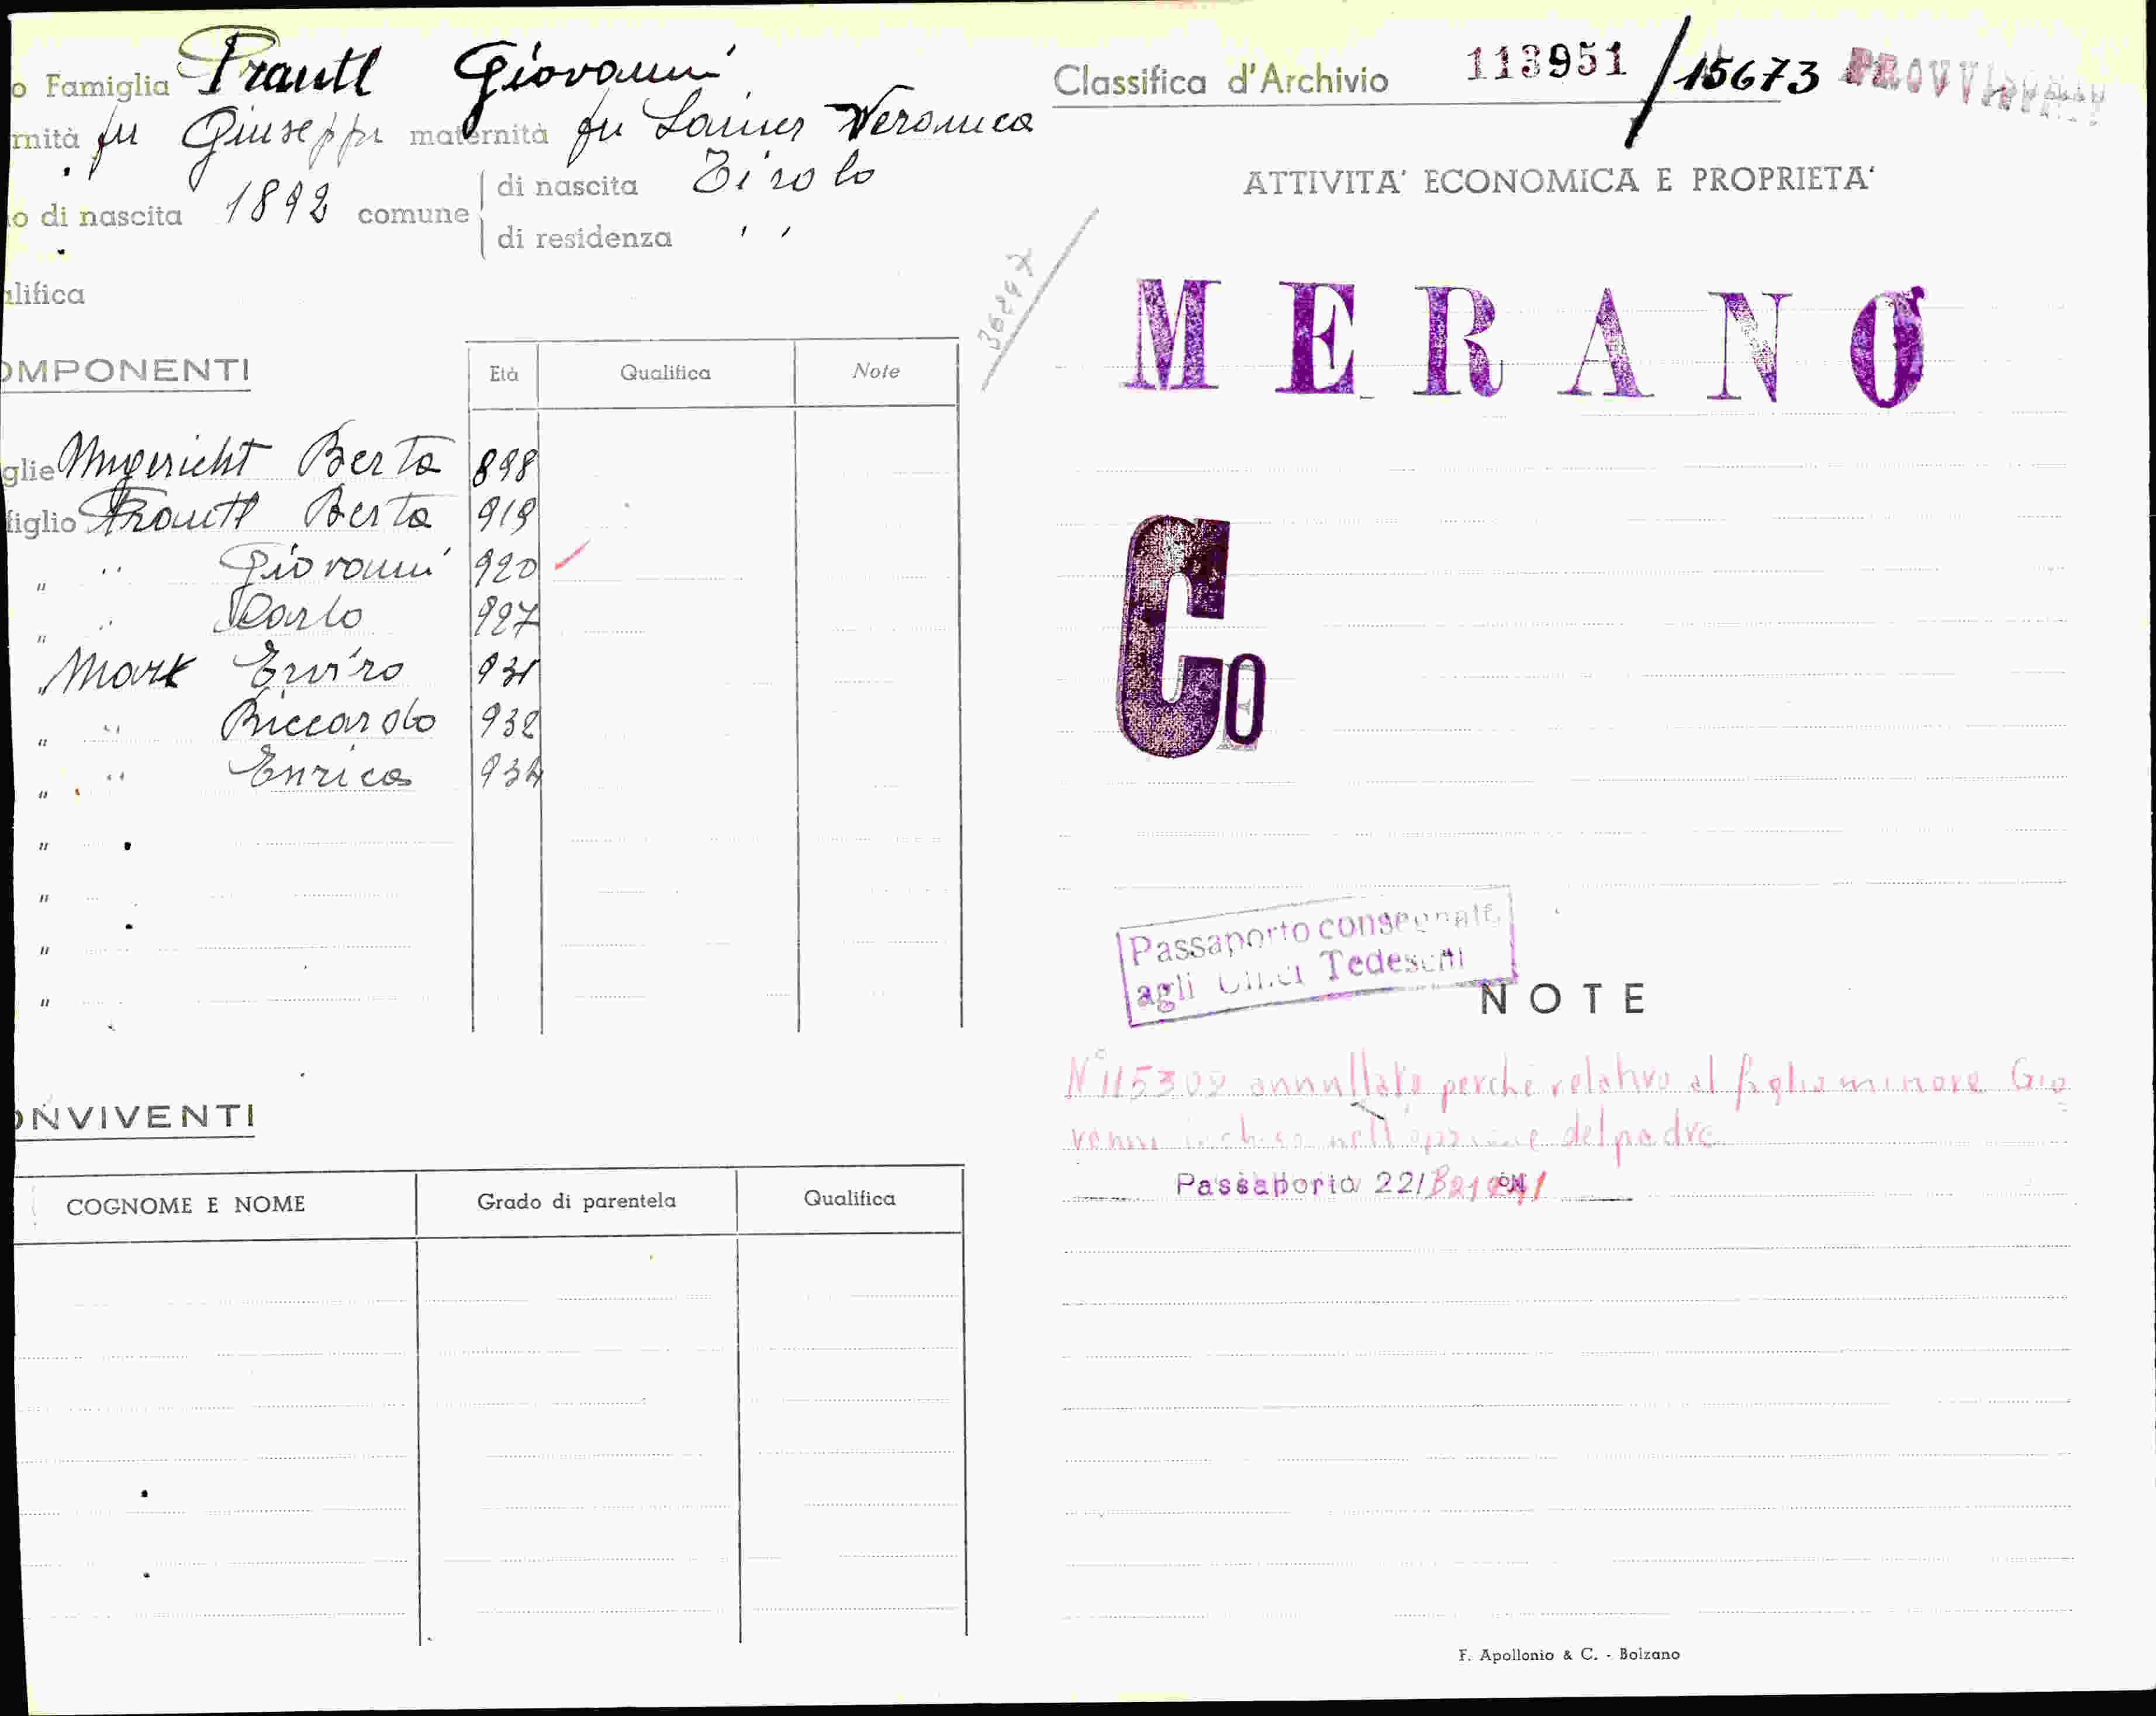 o Famiglia Prantl Giovanni
rnità fu Giuseppe maternità fu Lainer Veronica
o di nascita 1892 comune di nascita Tirolo
di residenza " "
alifica
OMPONENTI
Età Qualifica Note
glie Ungericht Berta 898
figlio Prantl Berta 919
" " Giovanni 920
" " Carlo 927
" Mark Erviro 931
" " Riccardo 932
" " Enrica 934
"
"
"
"
ONVIVENTI
COGNOME E NOME Grado di parentela Qualifica
Classifica d'Archivio 113951 / 15673 PROVVISORIO
ATTIVITA' ECONOMICA E PROPRIETA'
MERANO
Co
Passaporto consegnato
agli Uffici Tedeschi
NOTE
N° 115308 annullato perché relativo al figlio minore Gio
vanni incluso nell'opzione del padre
Passaporto 22/
F. Apollonio & C. - Bolzano